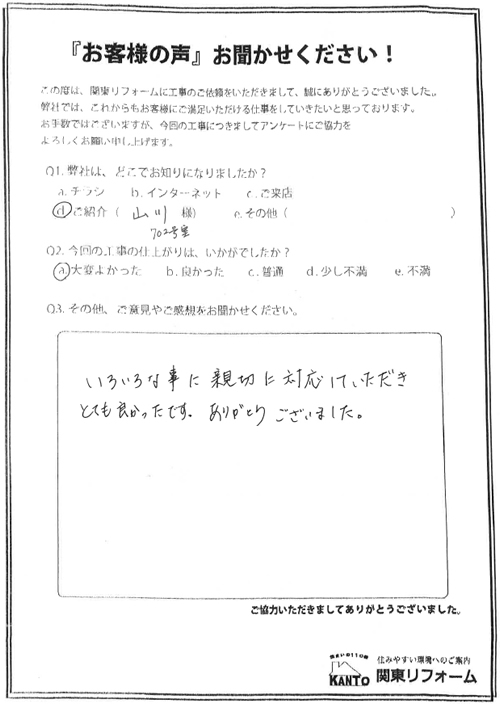 『お客様の声』お聞かせください！
この度は、関東リフォームに工事のご依頼をいただきまして、誠にありがとうございました。
弊社では、これからもお客様にご満足いただける仕事をしていきたいと思っております。
お手数ではございますが、今回の工事につきましてアンケートにご協力を
よろしくお願い申し上げます。
Q1. 弊社は、どこでお知りになりましたか？
a. チラシ b. インターネット c. ご来店
d. ご紹介（ 山川 様） e. その他（ ）
702号室
Q2. 今回の工事の仕上がりは、いかがでしたか？
a. 大変よかった b. 良かった c. 普通 d. 少し不満 e. 不満
Q3. その他、ご意見やご感想をお聞かせください。
いろいろな事に親切に対応していただき
とても良かったです。ありがとうございました。
ご協力いただきましてありがとうございました。
住まいの110番
住みやすい環境へのご案内
KANTO 関東リフォーム